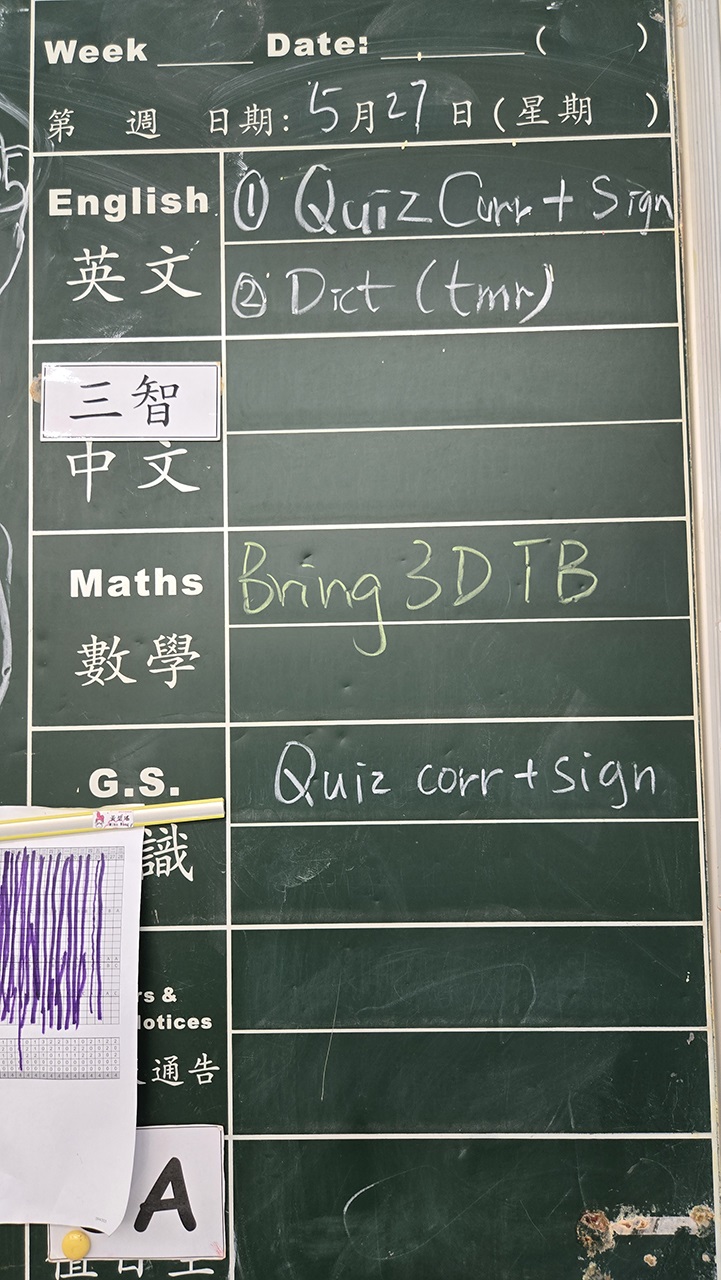 Week Date: ( )
第 週 日期: 5月27日(星期 )
English ① Quiz Corr + Sign
英文 ② Dict (tmr)
三智
中文
Maths Bring 3D TB
數學
G.S. Quiz corr + sign
識
rs &
otices
通告
A